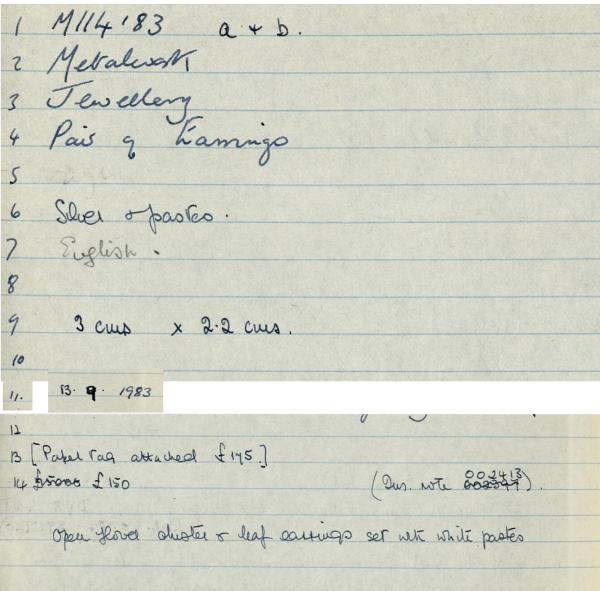 1 M114'83 a + b.
2 Metalwork
3 Jewellery
4 Pair of Earrings
5
6 Silver & pastes.
7 English.
8
9 3 cms x 2.2 cms.
10
11. 13. 9. 1983
12
13 [Paper tag attached £175.]
14 £150 (Ins. note 002413).
Open flower cluster & leaf earrings set with white pastes